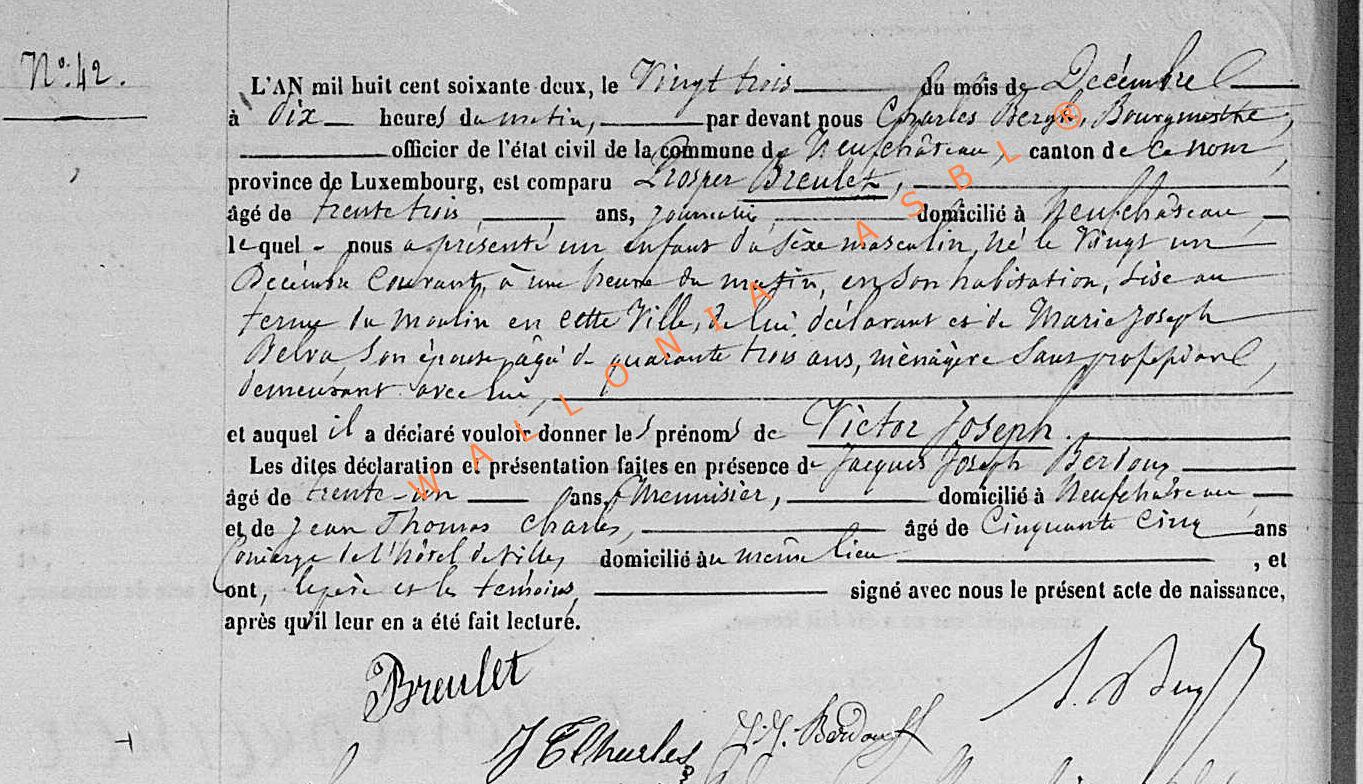 No. 42.
L'AN mil huit cent soixante deux, le Vingt trois du mois de Décembre
à dix heures du matin, par devant nous Charles Bergh, Bourgmestre,
officier de l'état civil de la commune de Neufchâteau, canton de ce nom,
province de Luxembourg, est comparu Prosper Breulet,
âgé de trente trois ans, journalier domicilié à Neufchâteau,
lequel nous a présenté un enfant du sèxe masculin, né le Vingt un
Décembre Courant, à une heure du matin, en son habitation, sise au
terme du moulin en cette Ville, de lui déclarant et de Marie Joseph
Belva son épouse, âgé de quarante trois ans, ménagère sans profession,
demeurant avec lui,
et auquel il a déclaré vouloir donner les prénoms de Victor Joseph.
Les dites déclaration et présentation faites en présence de Jacques Joseph
âgé de trente-un ans, Menuisier, domicilié à Neufchâteau
et de Jean Thomas Charles, âgé de Cinquante Cinq ans
Concierge de l'hôtel de Ville, domicilié au même lieu, et
ont, le père et les témoins, signé avec nous le présent acte de naissance,
après qu'il leur en a été fait lecture.
Breulet
J T Charles J. J.
WALLONIA ASBL ®